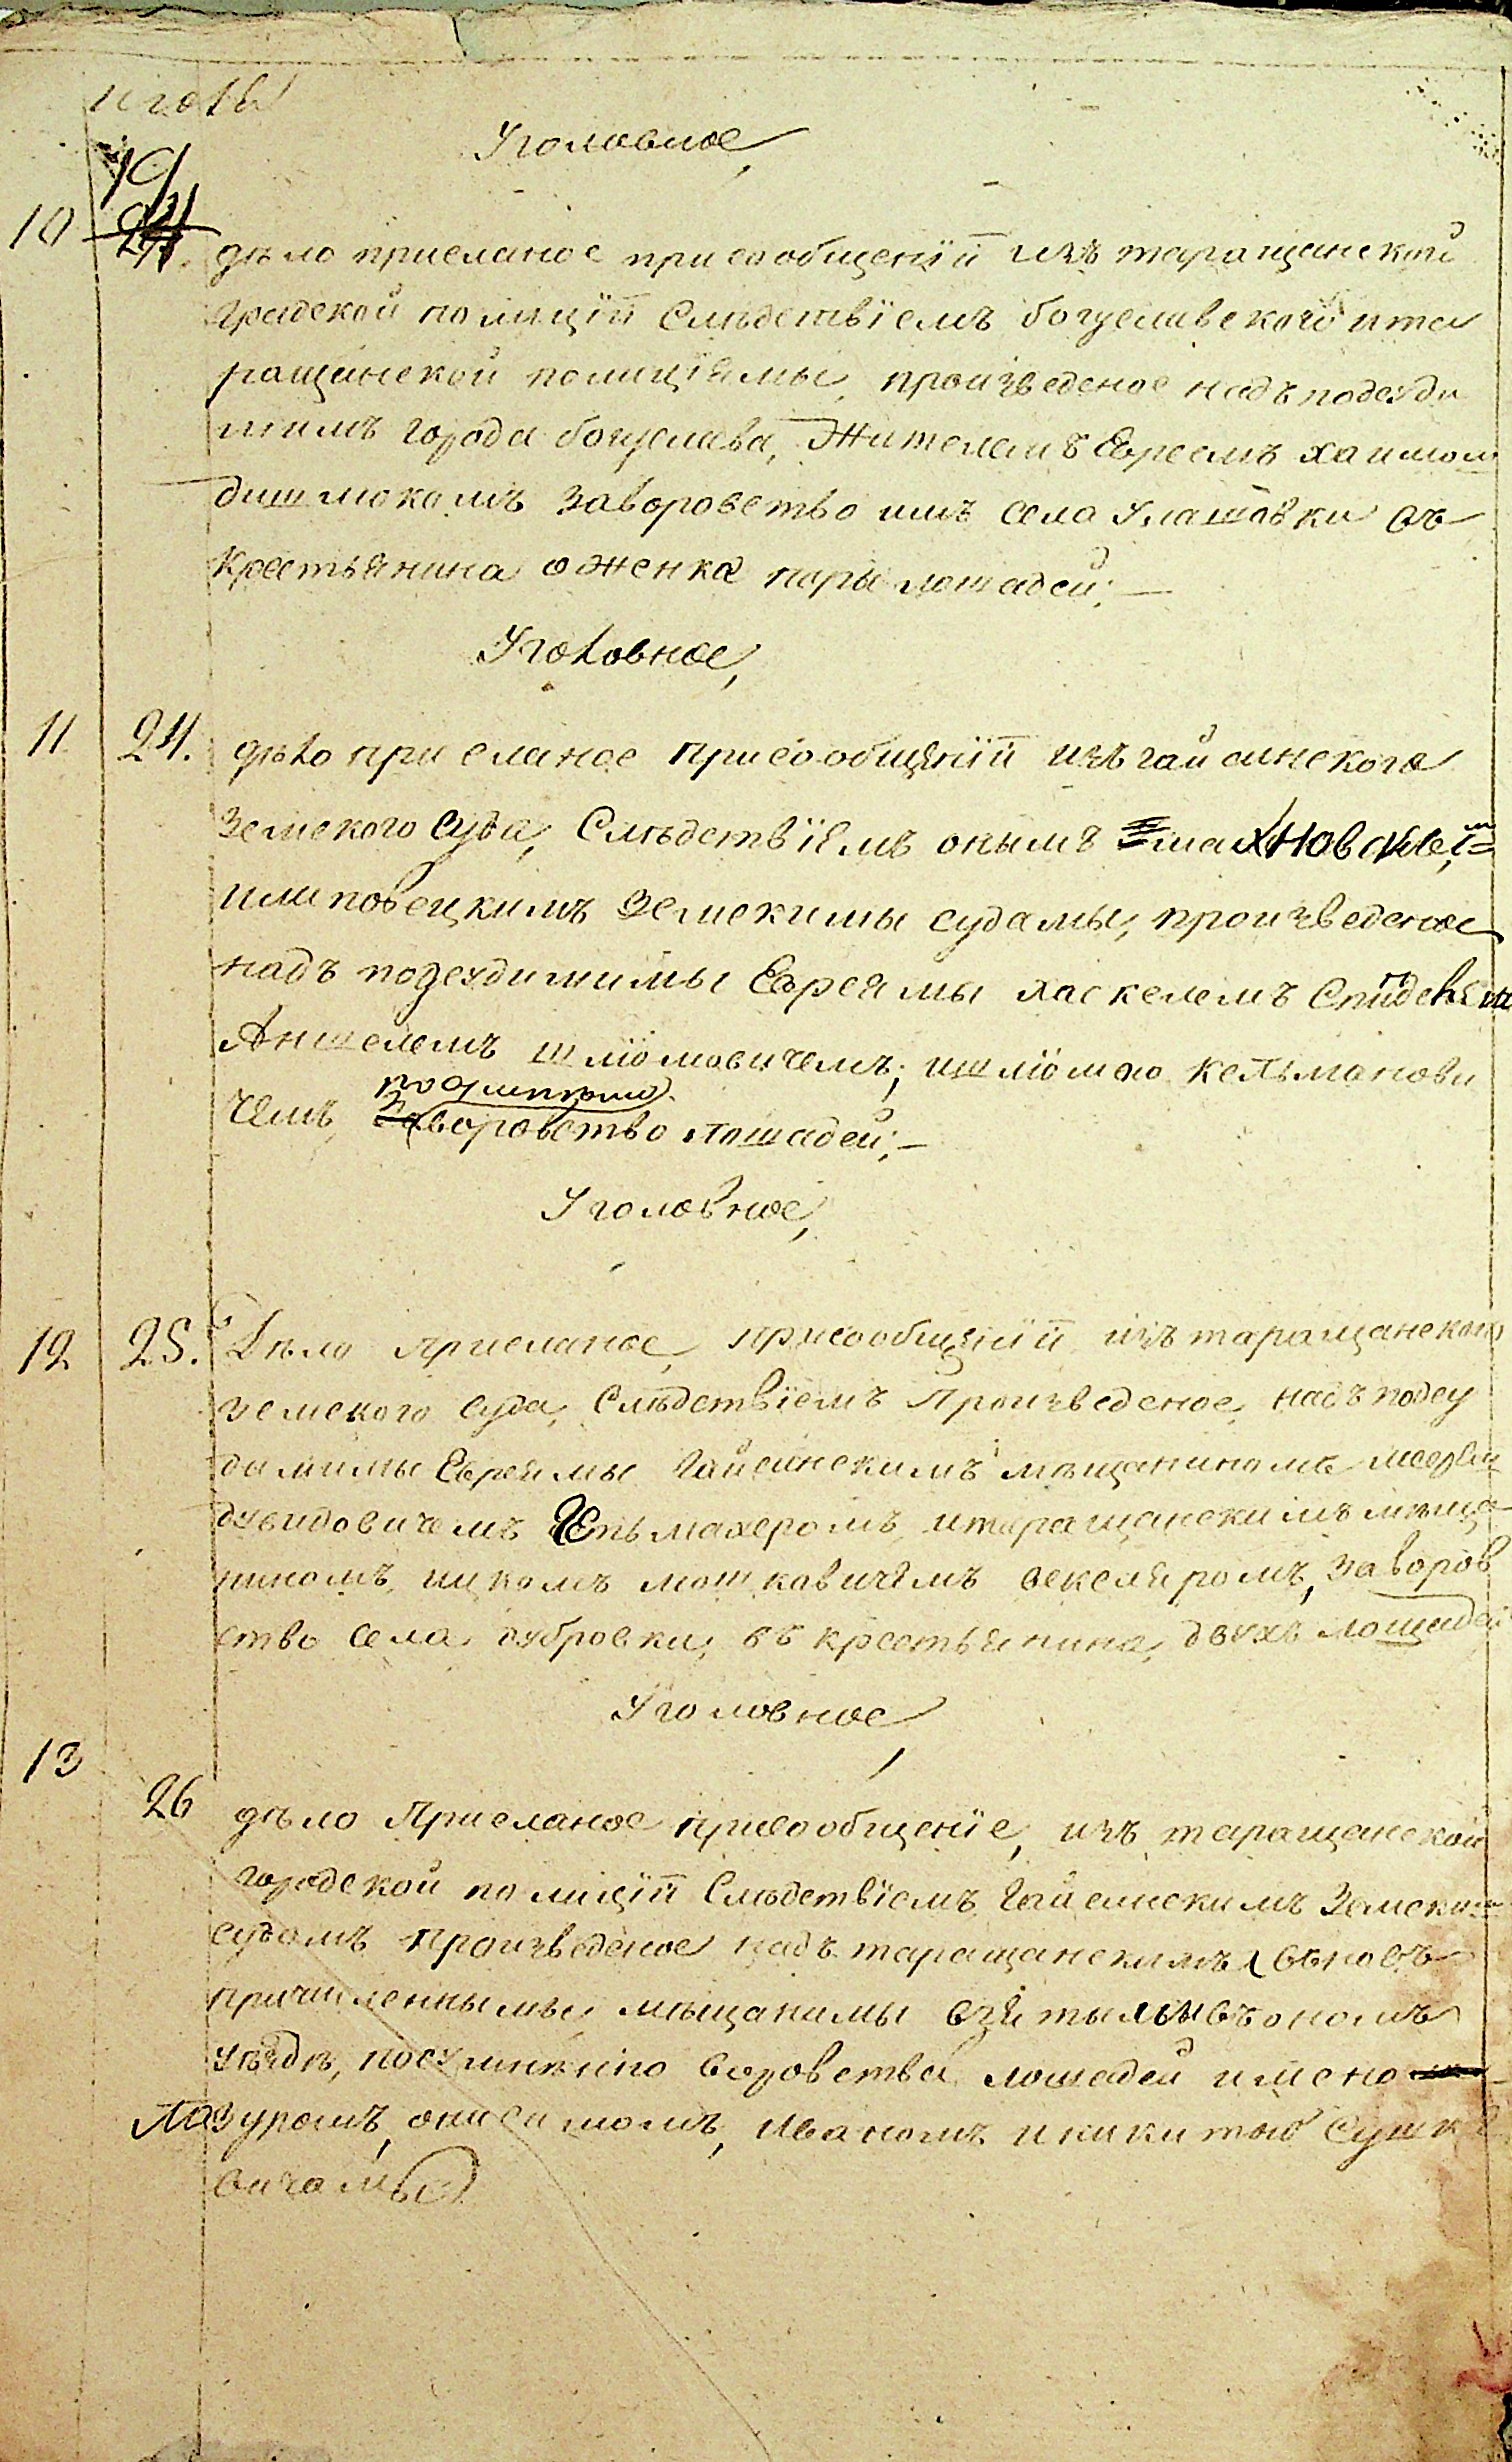 Июля
Уголовное,
19
10 дѣло присланое присообщеніи изъ таращанской
Градской полиціи Слѣдствіемъ богуславского ита
ращанской полиціямы, произведеное надъ подсуди
мимъ города богуслава, Жителемъ Евреемъ хаимом
заворовство имъ села Улашовки въ
крестьянина оженка пары лошадей;—
Уголовное,
11 24. дѣло присланое присообщеніи изъ гайсинского
земского суда, Слѣдствіемъ онымъ махновск
илиповецкимъ земскимы судамы, произведеное
надъ подсудимимы Евреямы хаскелемъ
Аншелемъ шліомовичемъ; ишліомою кельманови
чемъ, поумнѣнію
заворовство лошадей;—
Уголовное,
12 25. Дѣло присланое, присообщеніи изъ таращанского
земского суда, Слѣдствіемъ Произведеное, надъ подсу
димимы Евреямы Гайсинскимъ мѣщаниномъ
дувидовичемъ итаращанскимъ мѣща
ниномъ ицкомъ мошковичемъ векслеромъ, заворов
ство села дубровки, въ крестьянина, двухъ лошадей
Уголовное,
13 26 дѣло Присланое присообщеніе, изъ таращанской
городской полиціи Слѣдствіемъ Гайсинскимъ Земским
судомъ произведеное надъ таращанскимъ вѣновъ
причисленнымы, мѣщанамы взятымы въономъ
уѣздѣ, посумнѣнію воровства лошадей имено
Лазуромъ, онисимомъ, Иваномъ иникитою Сушке
вичамы